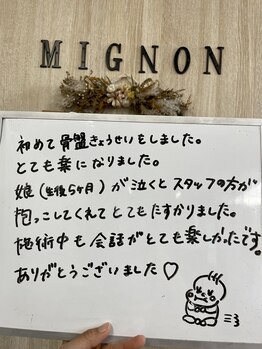 MIGNON
初めて骨盤きょうせいをしました。
とても楽になりました。
娘(生後5ヶ月)が泣くとスタッフの方が
抱っこしてくれてとてもたすかりました。
施術中も会話がとても楽しかったです。
ありがとうございました♡